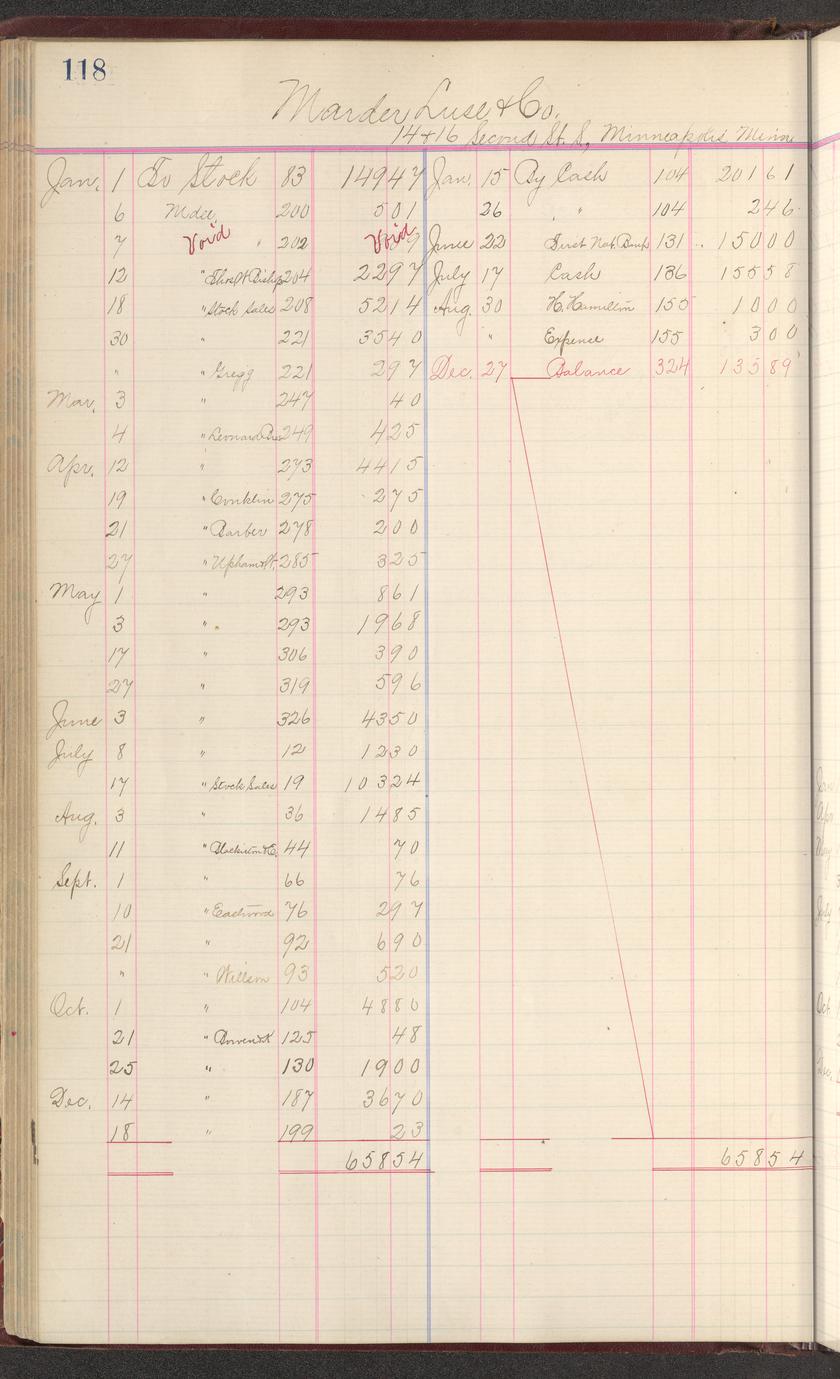 118
Marder Luse & Co.
14 & 16 Second St. S, Minneapolis Minn
Jan. 1 To Stock 83 14947 Jan. 15 By Cash 104 20161
6 Mdse 200 501 26 " 104 246
7 Void " 202 Void June 22 First Nat. Bank 131 15000
12 " 204 2297 July 17 Cash 136 15558
18 " Stock Sales 208 5214 Aug. 30 H. Hamilton 155 1000
30 " 221 3540 " Expense 155 300
" " Gregg 221 297 Dec. 27 Balance 324 13589
Mar. 3 " 247 40
4 " Leonard 249 425
Apr. 12 " 273 4415
19 " Conklin 275 275
21 " Barber 278 200
27 " 285 325
May 1 " 293 861
3 " 293 1968
17 " 306 390
27 " 319 596
June 3 " 326 4350
July 8 " 12 1230
17 " Stock Sales 19 10324
Aug. 3 " 36 1485
11 " 44 70
Sept. 1 " 66 76
10 " Eastwood 76 297
21 " 92 690
" " Willson 93 520
Oct. 1 " 104 4880
21 " 125 48
25 " 130 1900
Dec. 14 " 187 3670
18 " 199 23
65854 65854